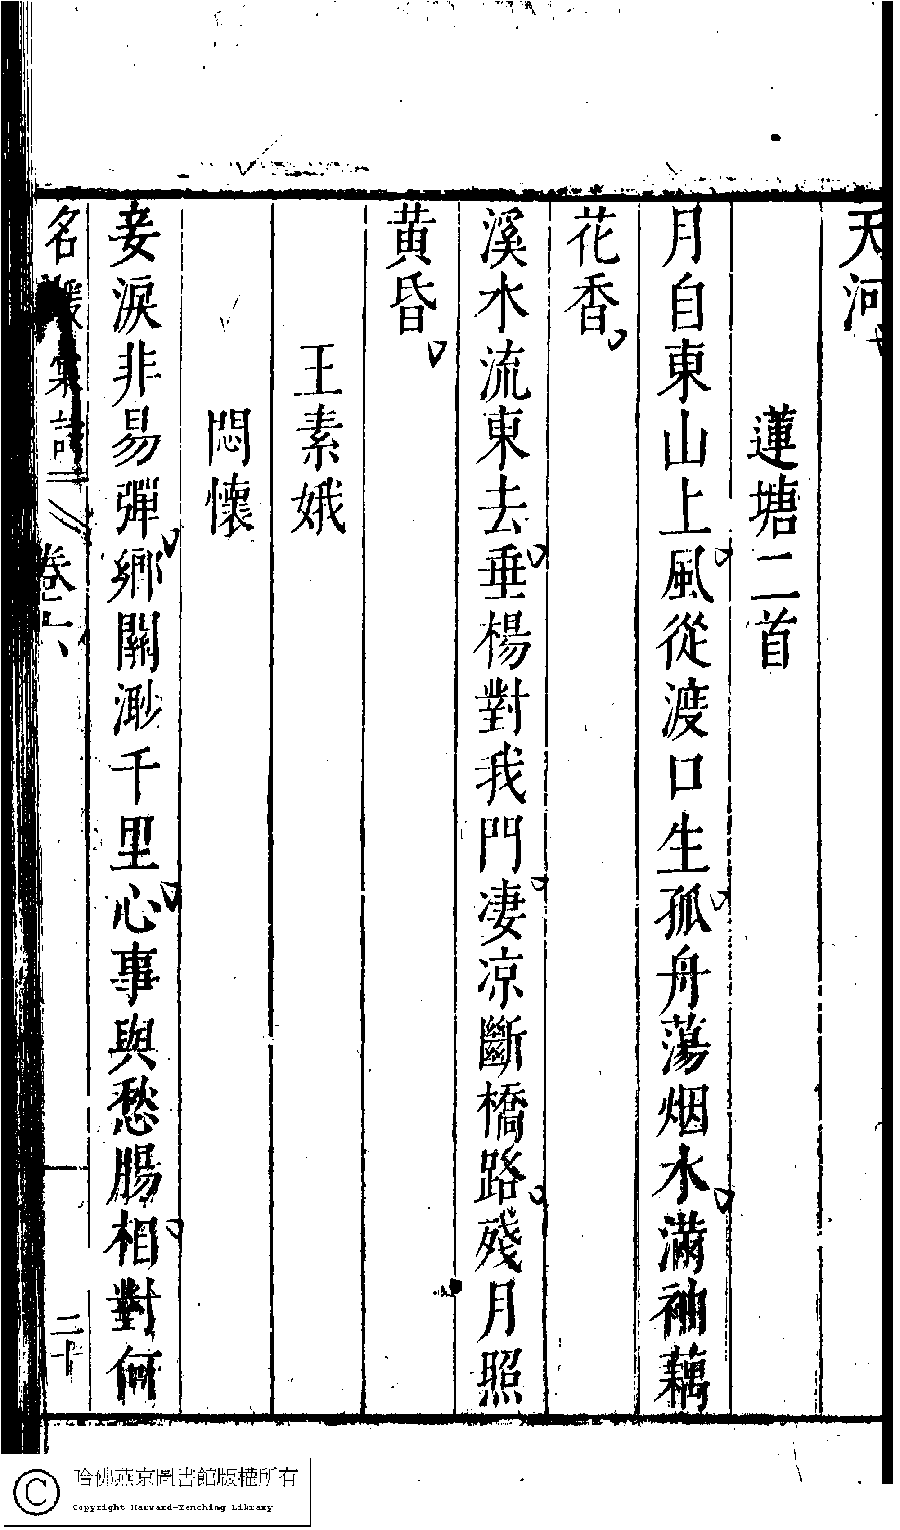 天河
蓮塘二首
月自東山上風從渡口生孤舟蕩烟水滿袖藕
花香
溪水流東去垂楊對我門淒凉斷橋路殘月照
黄昏
王素娥
悶懷
妾淚非易彈鄉關渺千里心事與愁腸相對何
名媛彙詩 卷十八 二十
哈佛燕京圖書館版權所有
Copyright Harvard-Yenching Library